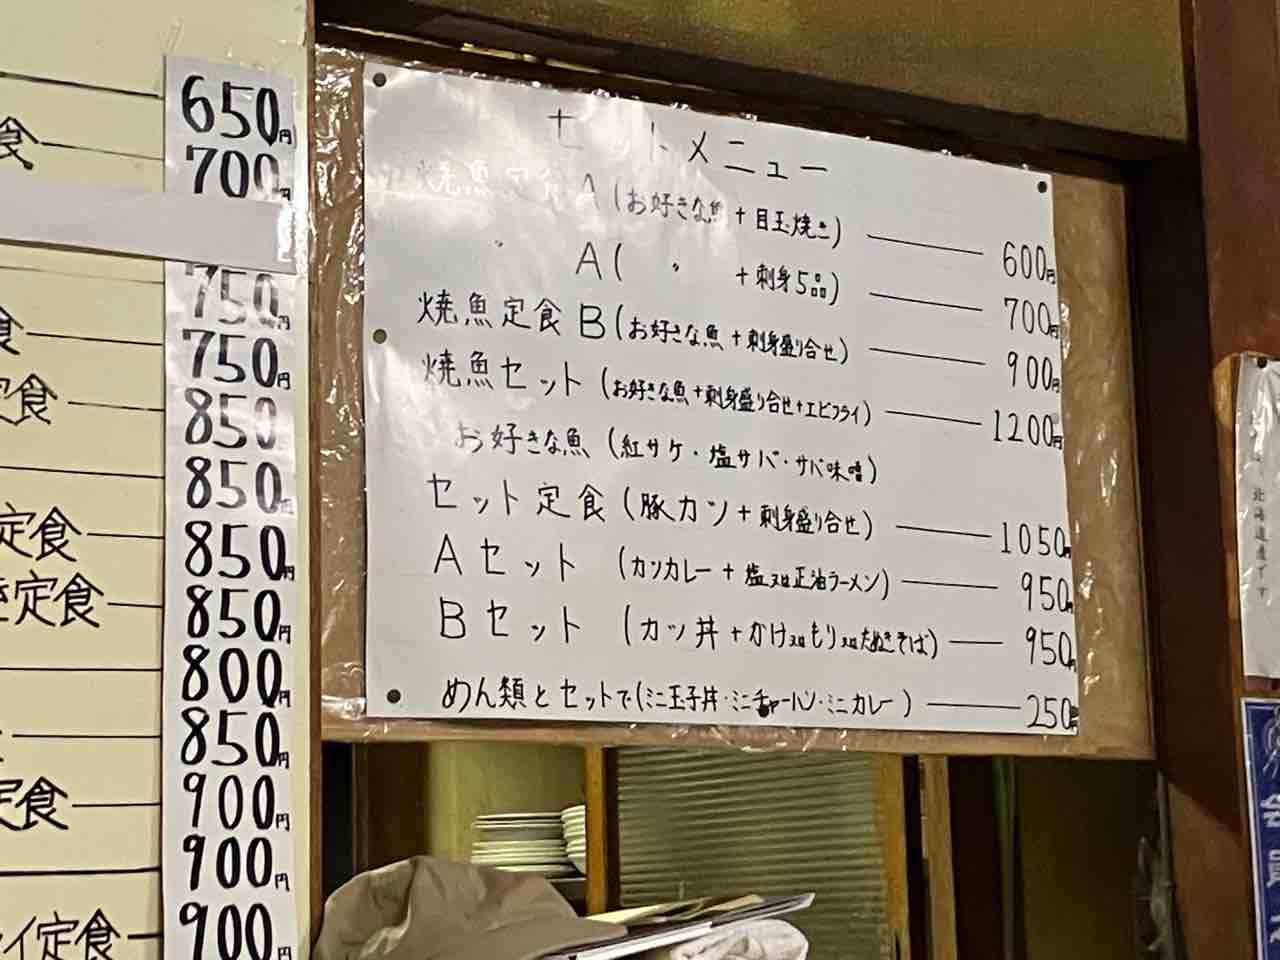 650円
食 700円
750円
食 750円
定食 850
850円
定食 850円
定食 850円
800円
850円
定食 900円
900円
イ定食 900円
セットメニュー
焼魚定食A(お好きな魚+目玉焼き) 600円
〃 A( 〃 +刺身5品) 700円
焼魚定食B(お好きな魚+刺身盛り合せ) 900円
焼魚セット(お好きな魚+刺身盛り合せ+エビフライ) 1200円
お好きな魚(紅サケ・塩サバ・サバ味噌)
セット定食(豚カツ+刺身盛り合せ) 1050円
Aセット(カツカレー+塩又は正油ラーメン) 950円
Bセット(カツ丼+かけ又はもり又はたぬきそば) 950円
めん類とセットで(ミニ玉子丼・ミニチャーハン・ミニカレー) 250円
北海道産です
会員